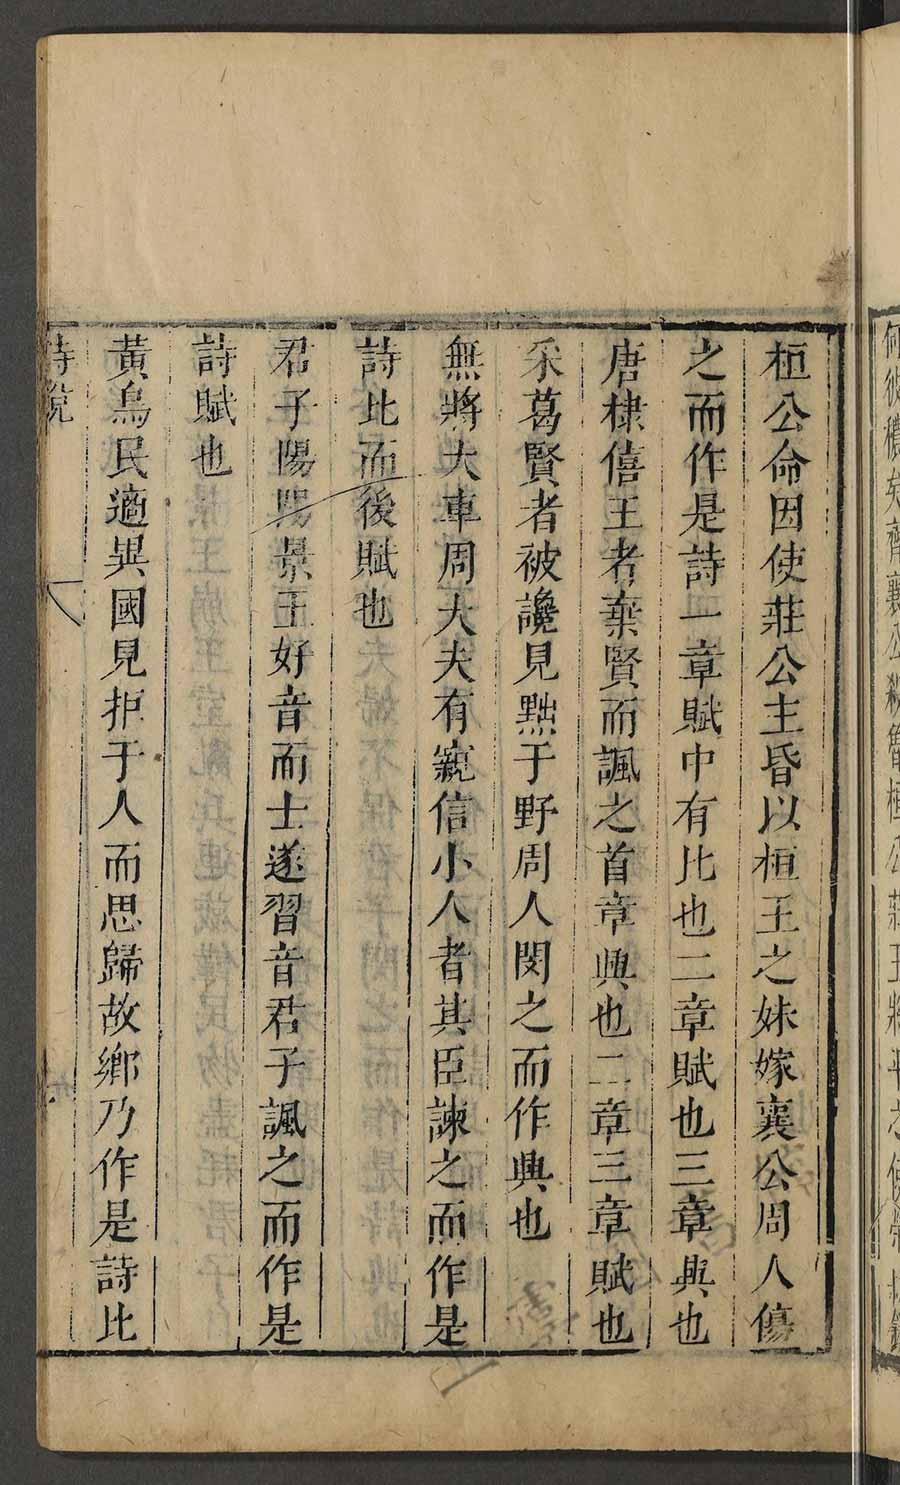 何彼穠矣齊襄公殺魯桓公莊王將平之使榮叔錫
桓公命因使莊公主昏以桓王之妹嫁襄公周人傷
之而作是詩一章賦中有比也二章賦也三章興也
唐棣僖王者棄賢而諷之首章興也二章三章賦也
采葛賢者被讒見黜于野周人閔之而作興也
無將大車周大夫有寴信小人者其臣諫之而作是
詩比而後賦也
君子陽陽景王好音而士遂習音君子諷之而作是
詩賦也
黃鳥民適異國見拒于人而思歸故鄉乃作是詩比
詩說